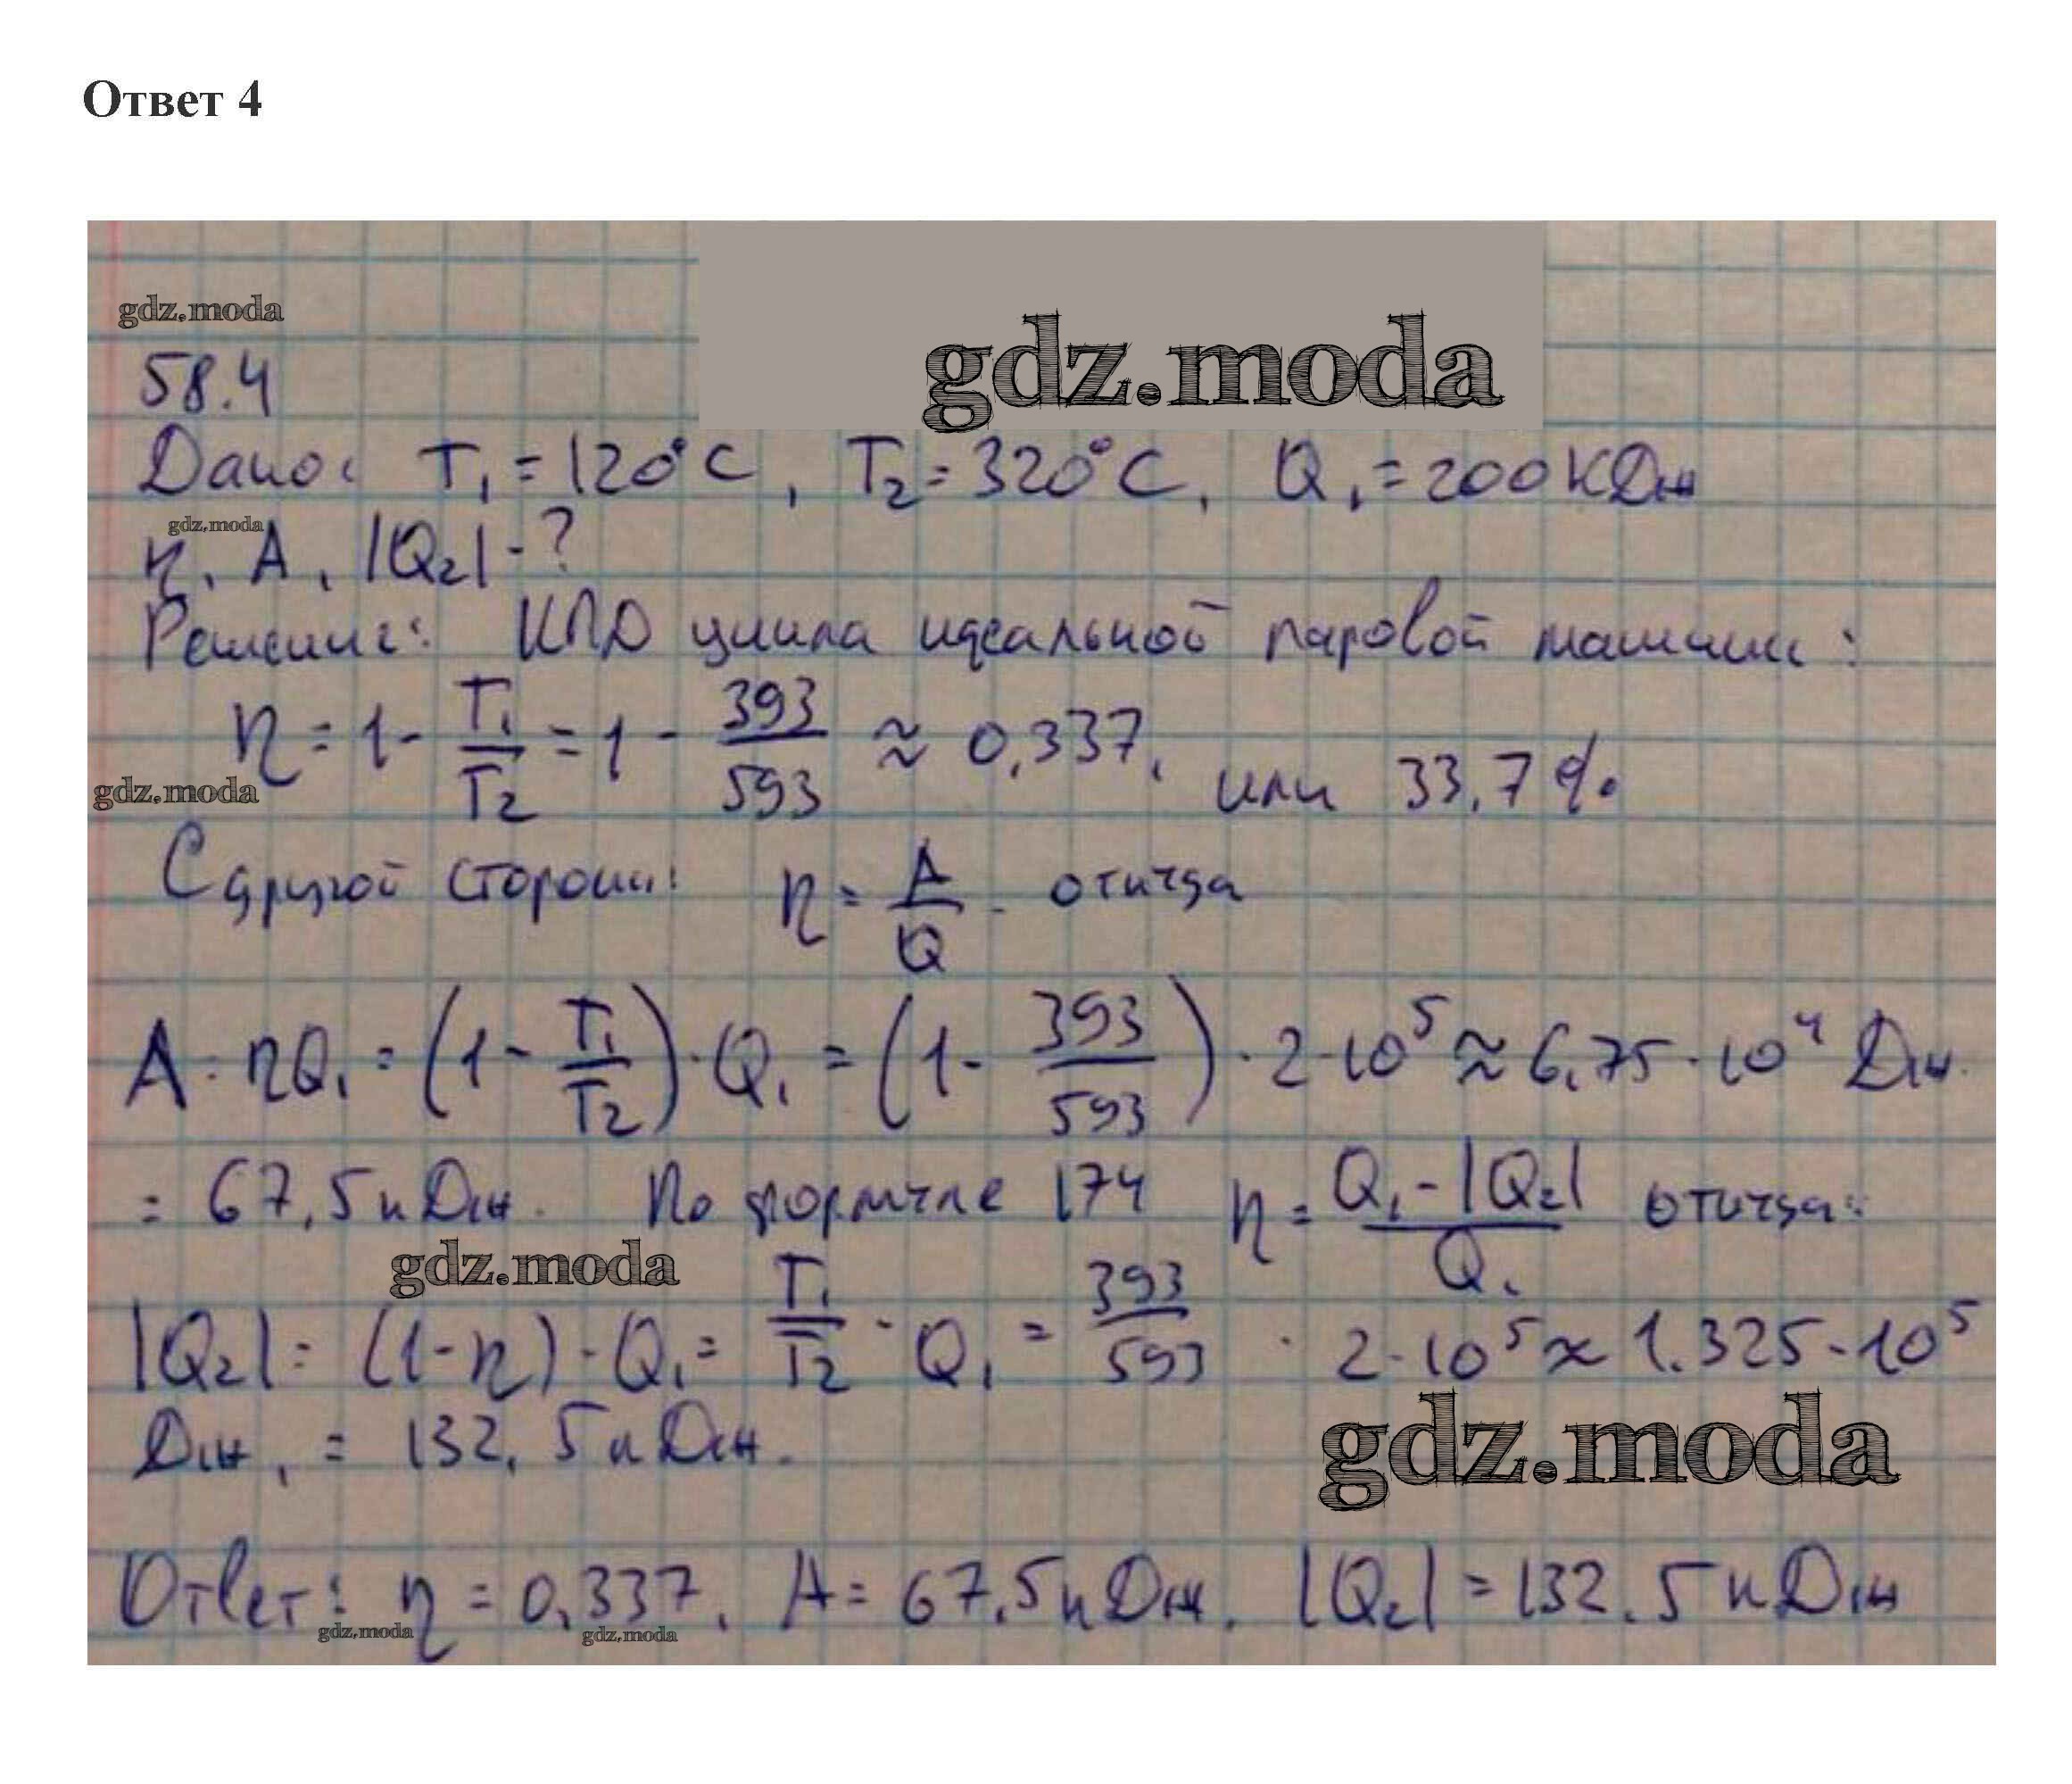 Ответ 4
gdz.moda
gdz.moda
58.4
Дано: T₁ = 120°C, T₂ = 320°C, Q₁ = 200 кДж
gdz.moda
η, A, |Q₂| - ?
Решение: КПД цикла идеальной паровой машины:
η = 1 - T₁/T₂ = 1 - 393/593 ≈ 0,337, или 33,7%
gdz.moda
С другой стороны: η = A/Q - откуда
A = ηQ₁ = (1 - T₁/T₂) · Q₁ = (1 - 393/593) · 2·10⁵ ≈ 6,75·10⁴ Дж
= 67,5 кДж. По формуле 174 η = (Q₁ - |Q₂|)/Q₁ откуда:
gdz.moda
|Q₂| = (1-η)·Q₁ = T₁/T₂ · Q₁ = 393/593 · 2·10⁵ ≈ 1.325·10⁵
Дж, = 132,5 кДж.
gdz.moda
Ответ: η = 0,337, A = 67,5 кДж, |Q₂| = 132,5 кДж
gdz.moda
gdz.moda